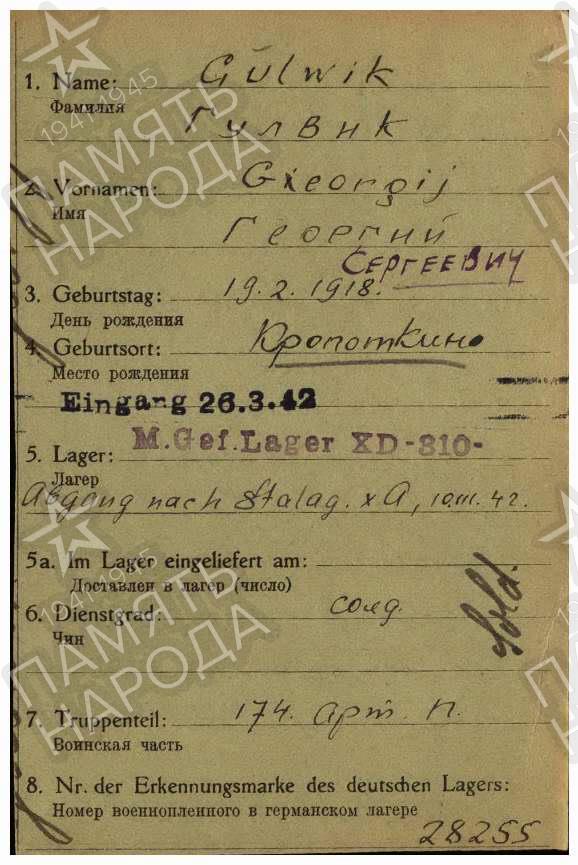 1. Name: Gulwik
Фамилия
Гулвик
2. Vornamen: Georgij
Имя
Георгий
Сергеевич
3. Geburtstag: 19.2.1918.
День рождения
4. Geburtsort: Кропоткино
Место рождения
Eingang 26.3.42
M.Gef.Lager XD-310-
5. Lager:
Лагер
Abgang nach Stalag. x A, 10.III.42.
5a. Im Lager eingeliefert am:
Доставлен в лагер (число)
Sold.
6. Dienstgrad: солд.
Чин
7. Truppenteil: 174. арт. п.
Воинская часть
8. Nr. der Erkennungsmarke des deutschen Lagers:
Номер военнопленного в германском лагере
28255
ПАМЯТЬ
НАРОДА
1941-1945